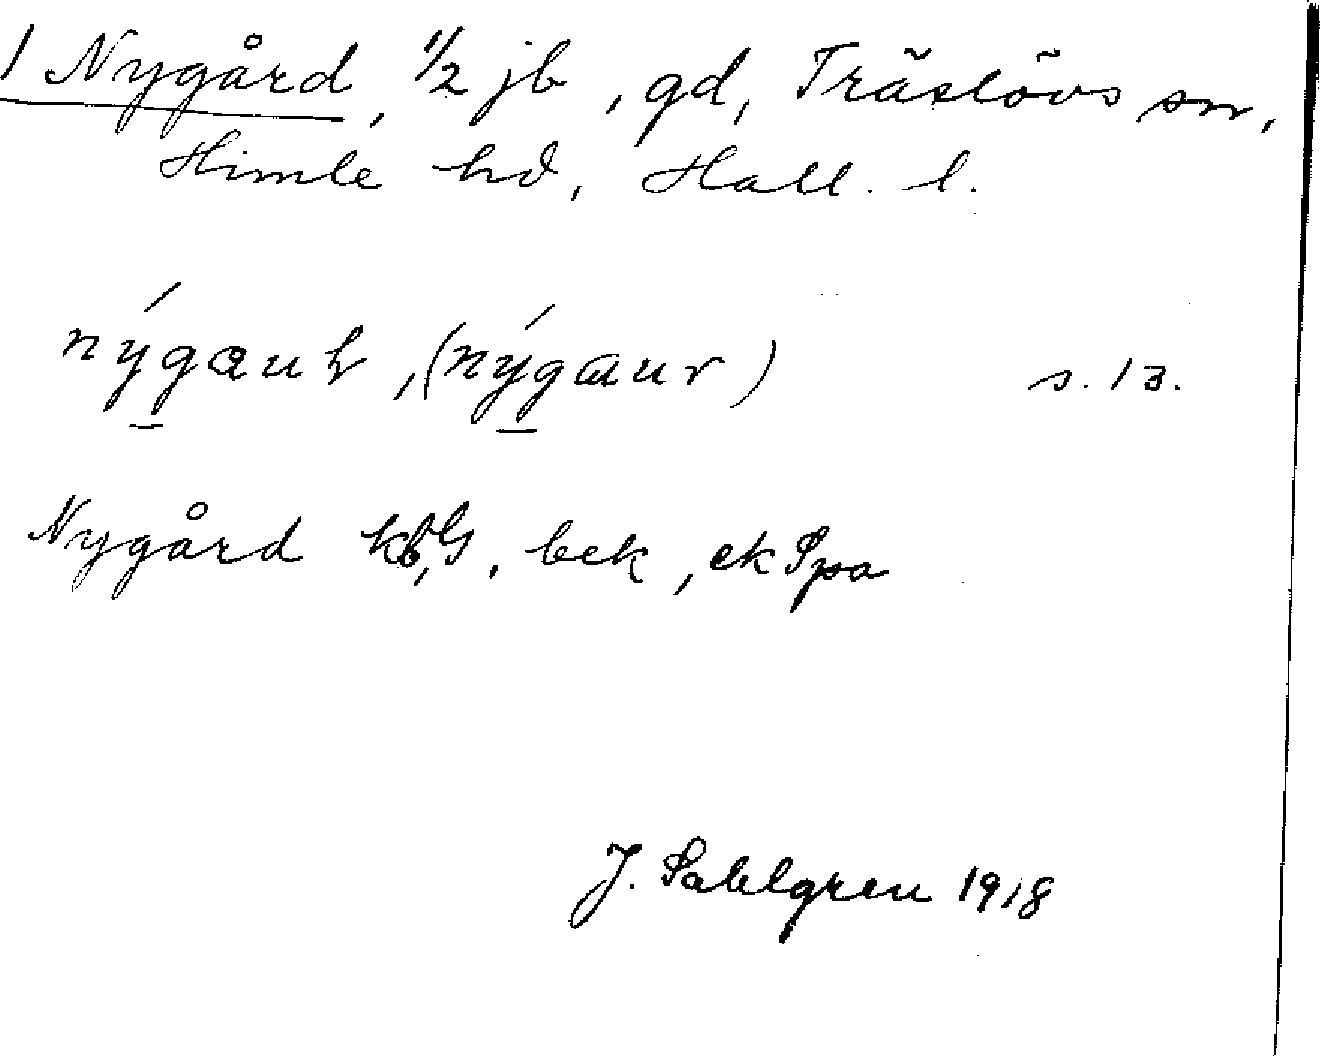 1 Nygård, 1/2 jb, gd, Träslövs sn,
Himle hd, Hall. l.
nýgauh, (nýgaur) s. 13.
Nygård kb, G, bek, ek Spa
J. Sahlgren 1918